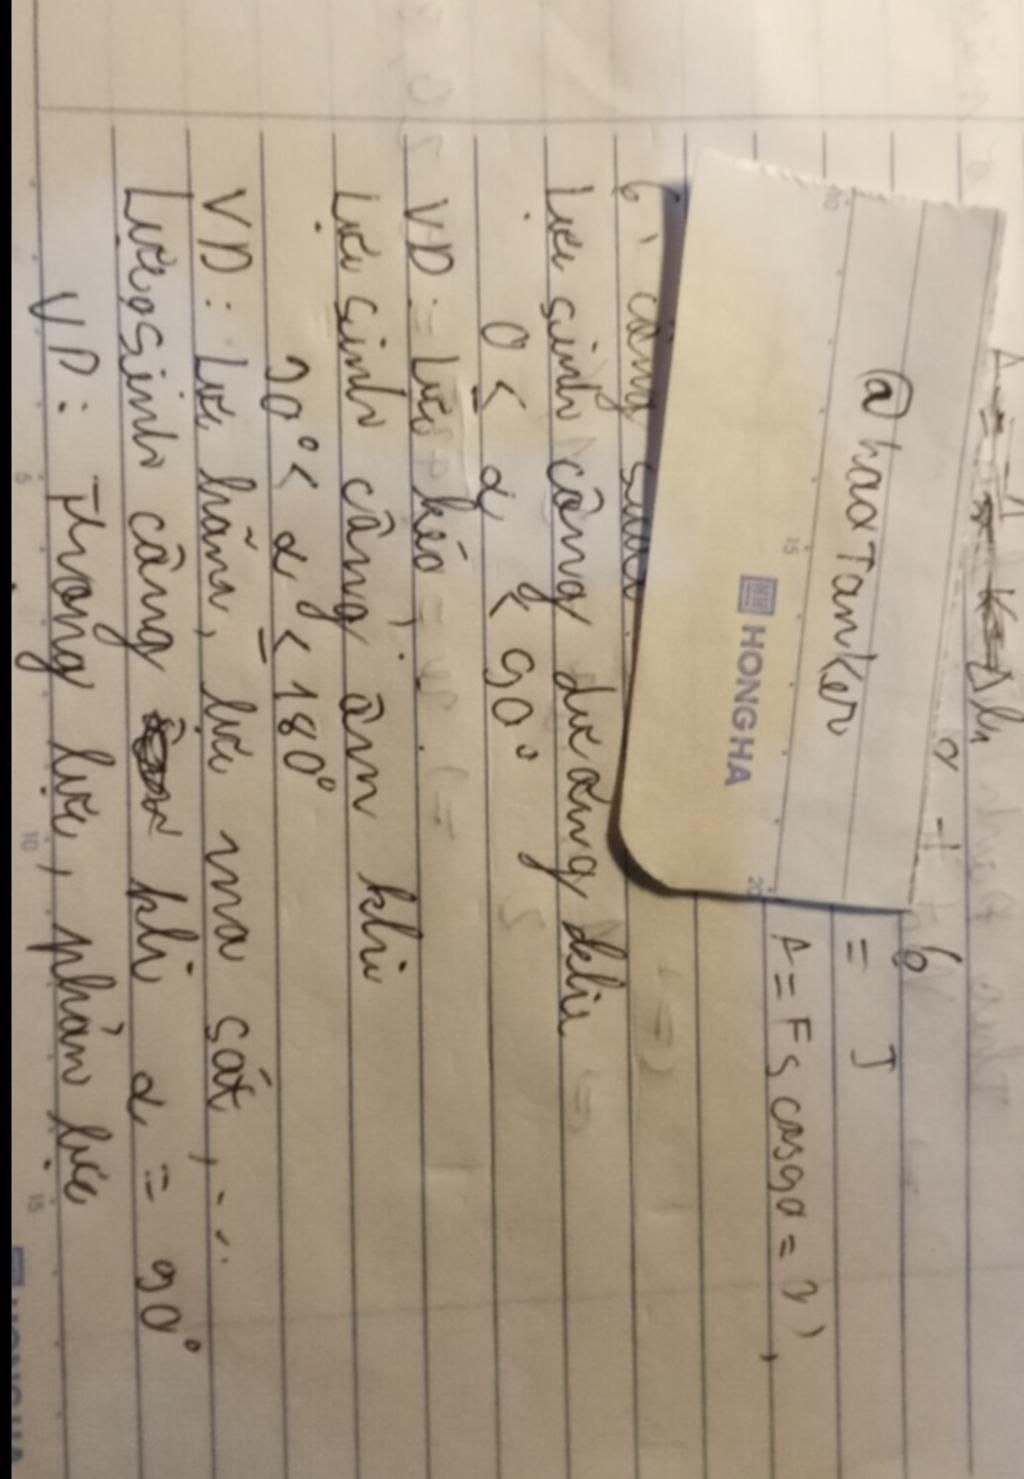 @haxTanker
HONG HA
= J
A = F S cos90 = 0 J
6, công suất
Lực sinh công dương khi
0 ≤ α < 90°
VD: Lực kéo, ...
Lực sinh công âm khi
90° < α ≤ 180°
VD: Lực hãm, lực ma sát, ...
Lực o sinh công khi α = 90°
VD: Trọng lực, phản lực